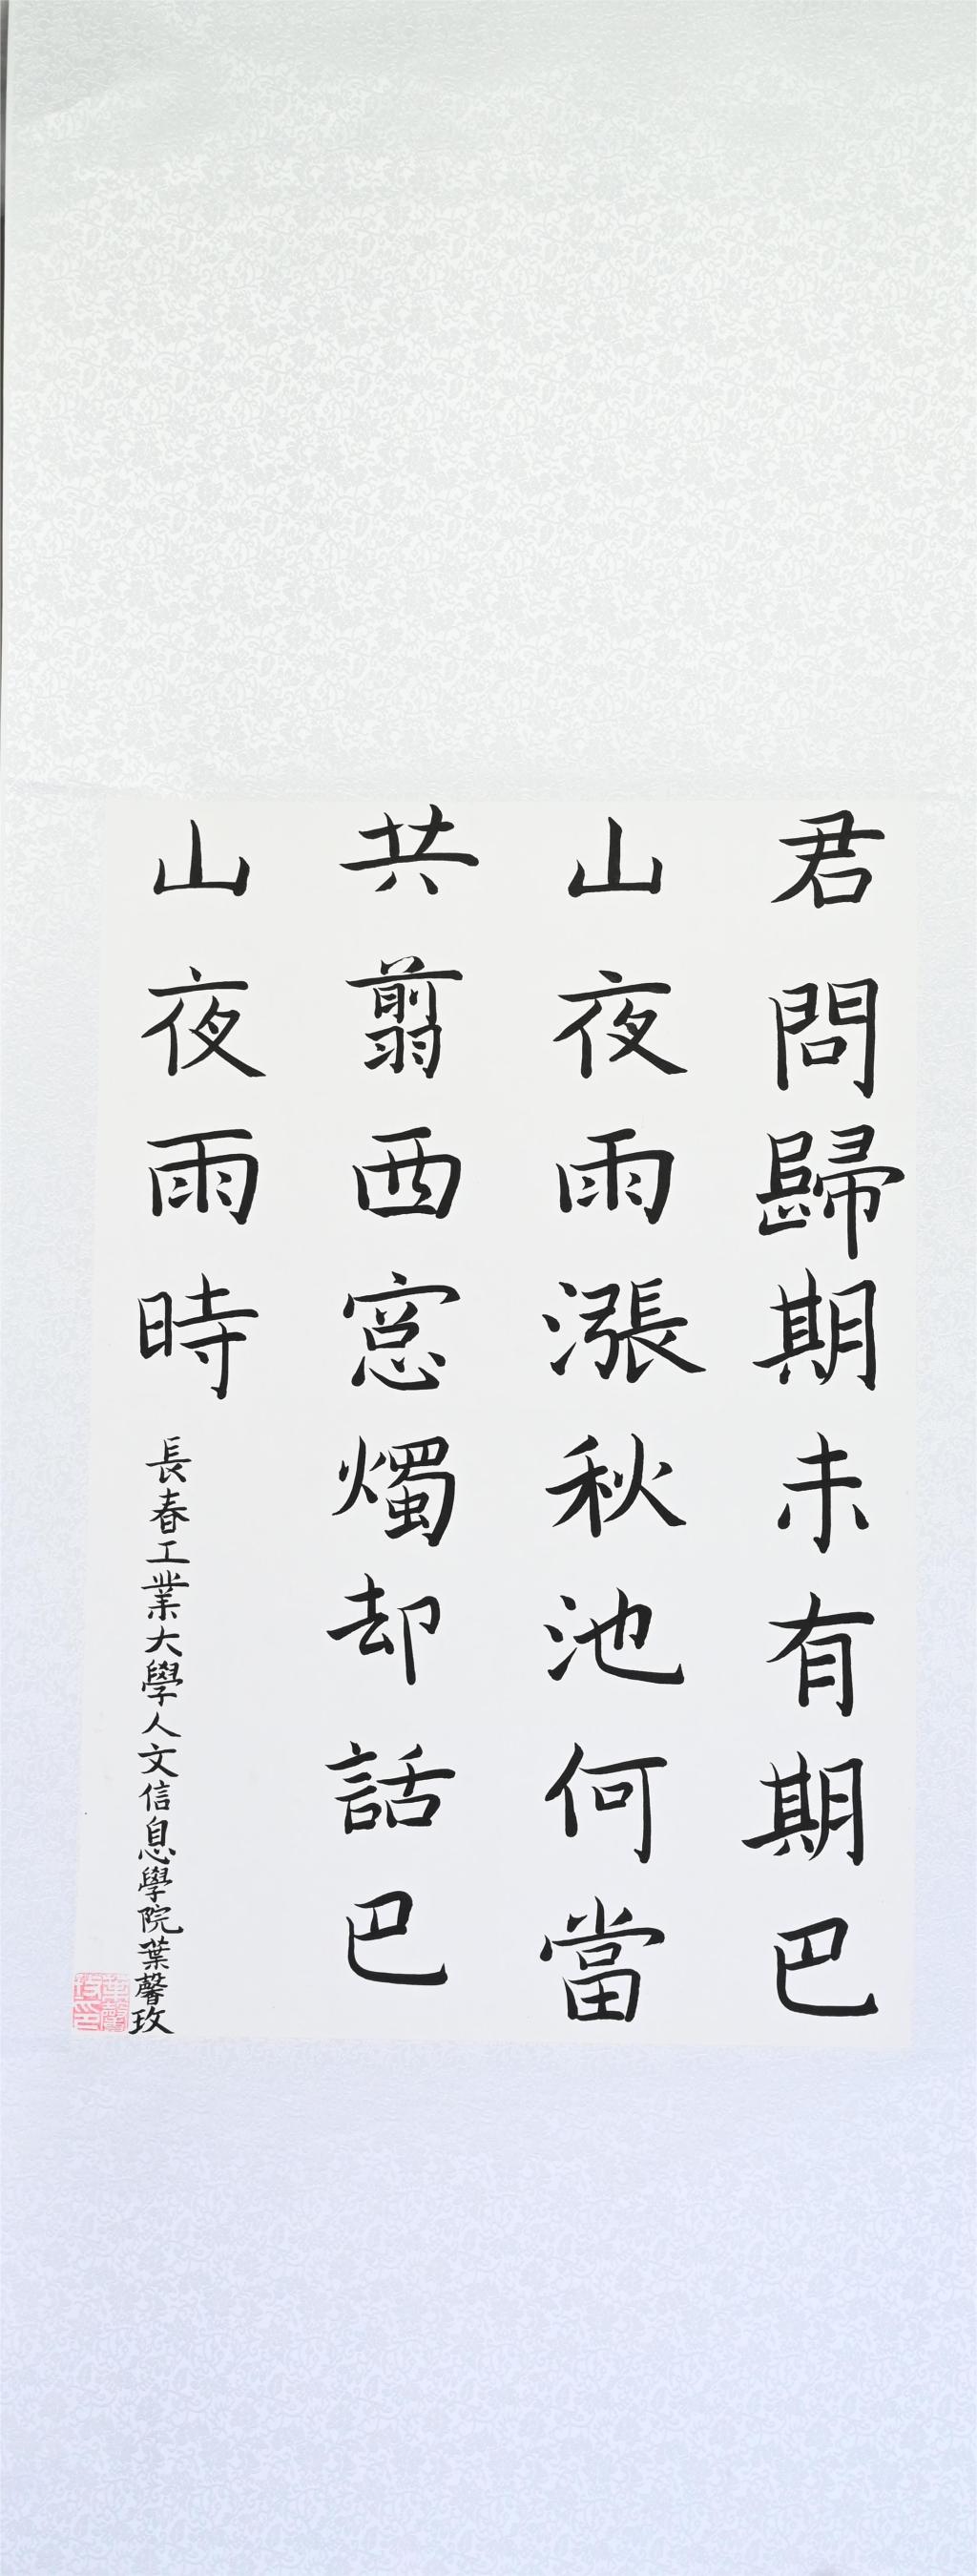 君問歸期未有期巴
山夜雨漲秋池何當
共翦西窓燭却話巴
山夜雨時
長春工業大學人文信息學院葉馨玫